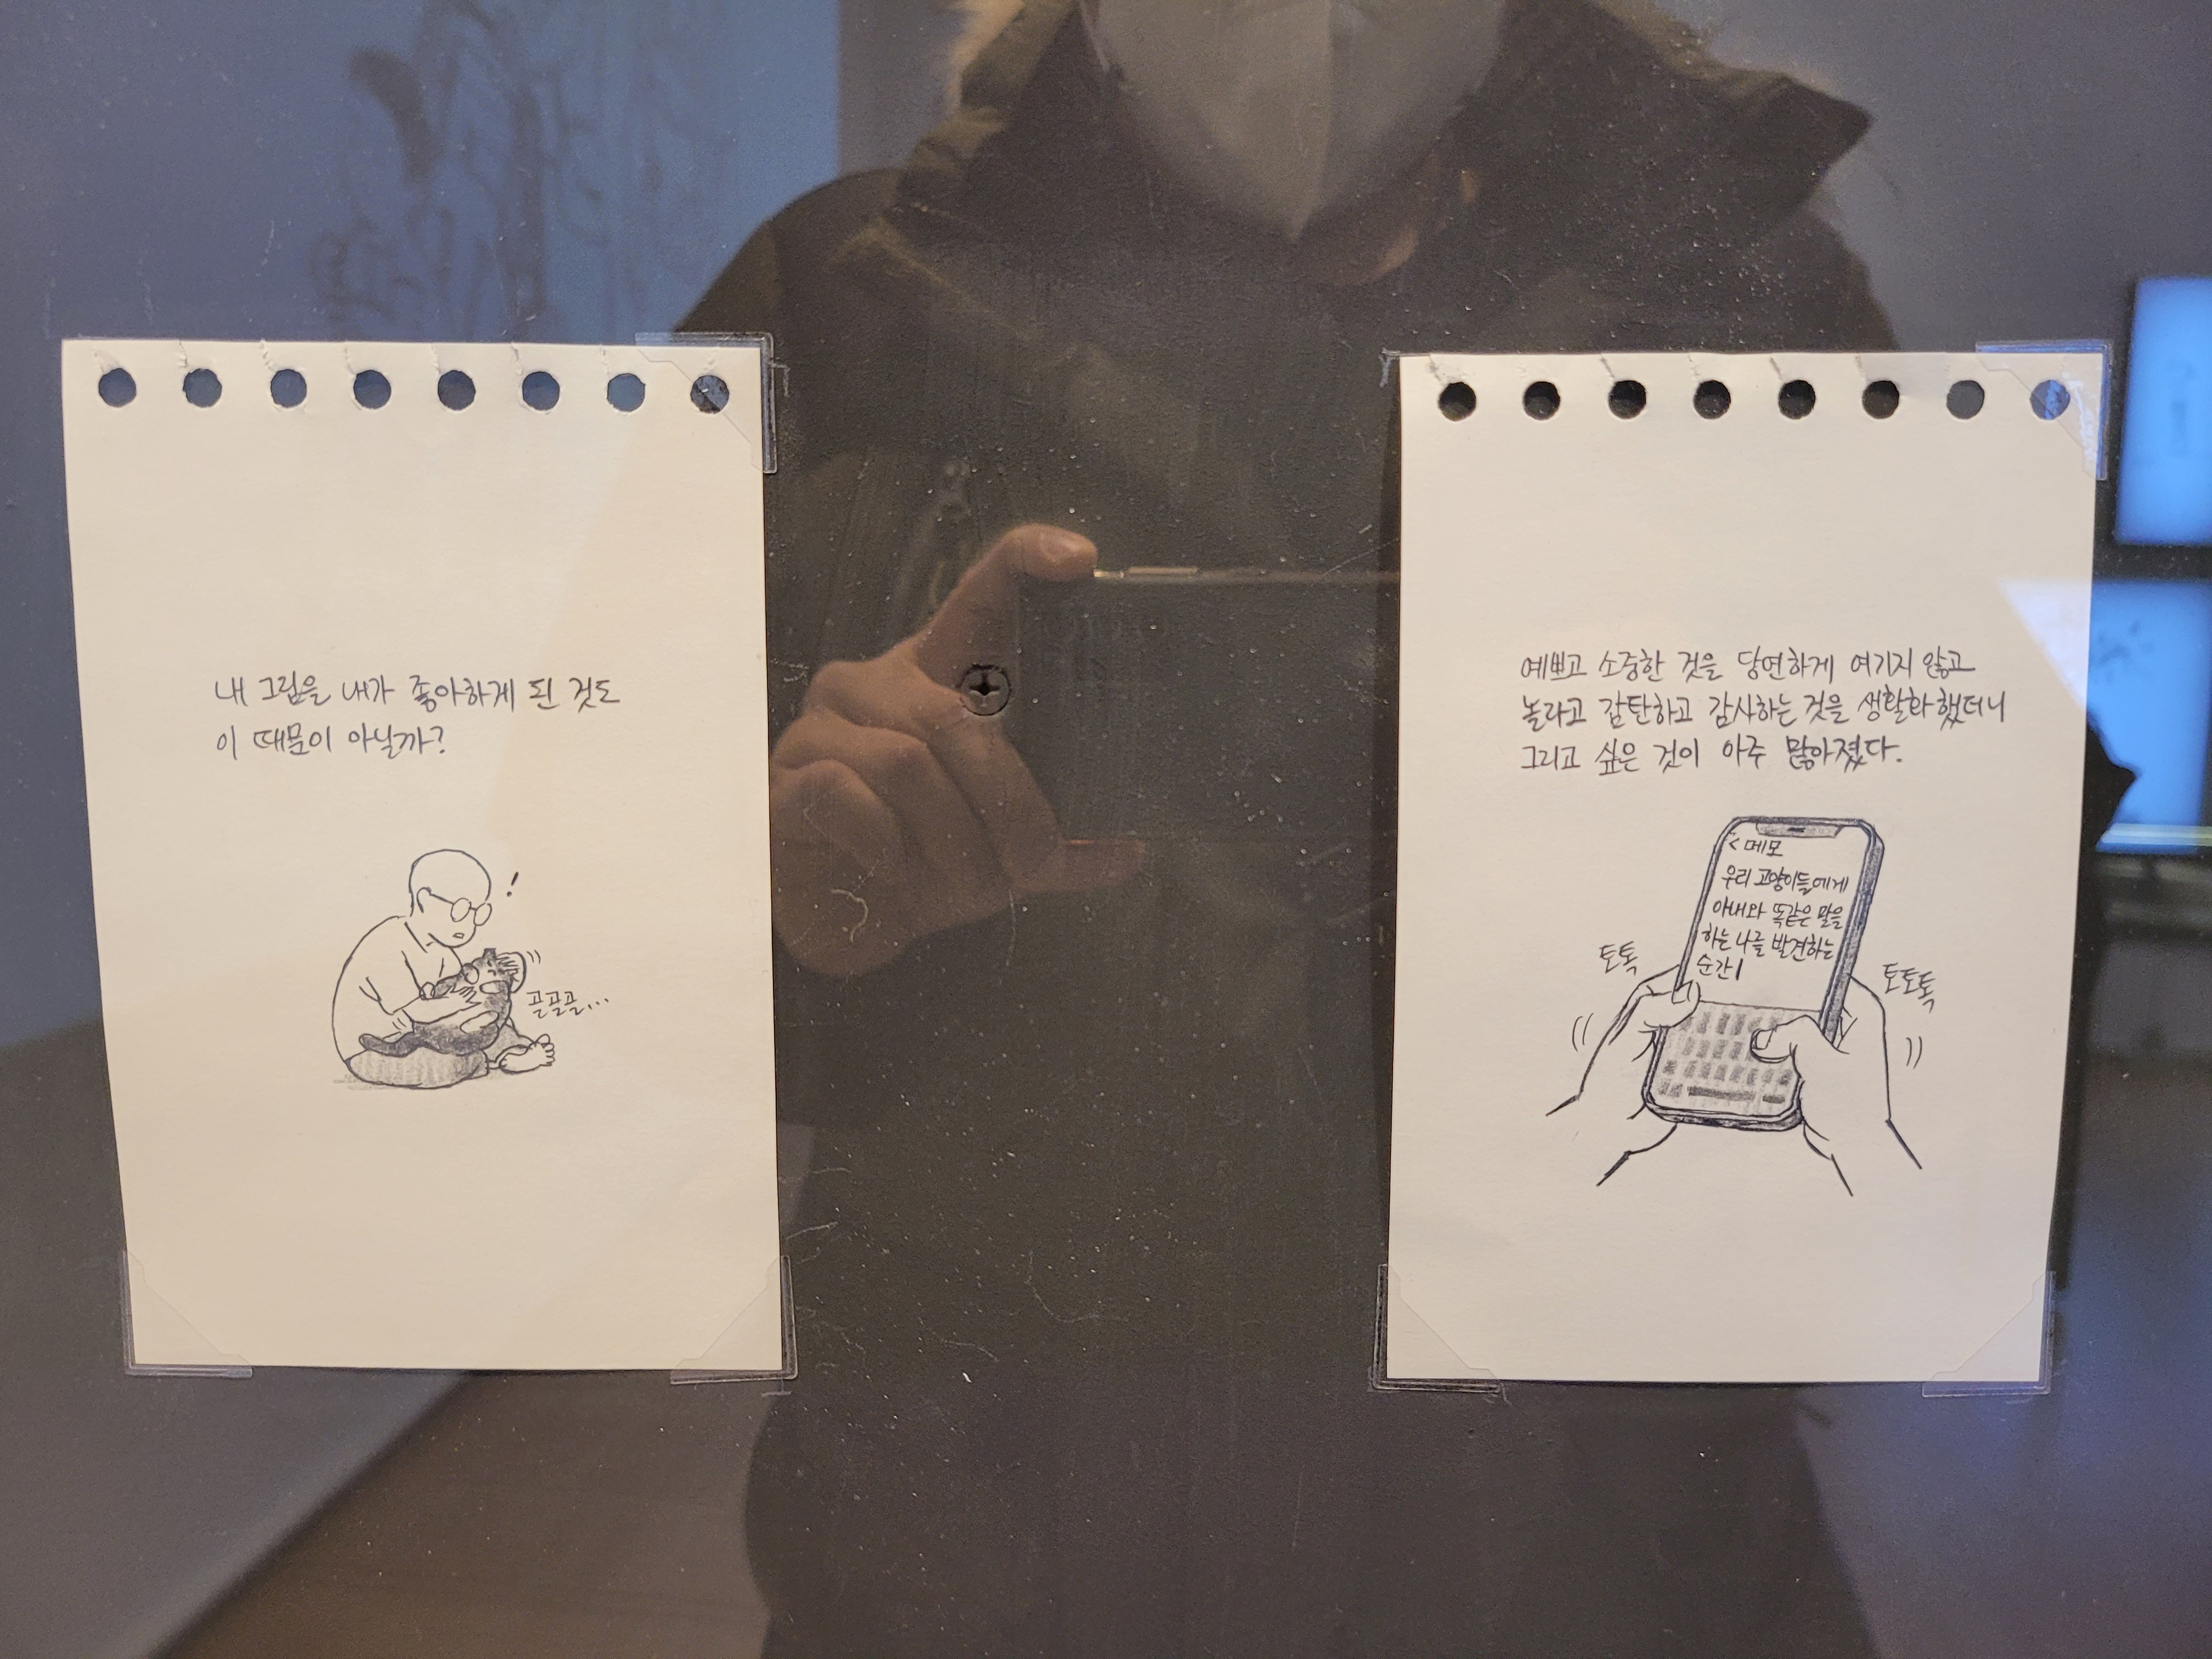 내 그림을 내가 좋아하게 된 것도
이 때문이 아닐까?
!
골골골...
예쁘고 소중한 것을 당연하게 여기지 않고
놀라고 감탄하고 감사하는 것을 생활화했더니
그리고 싶은 것이 아주 많아졌다.
< 메모
우리 고양이들에게
아내와 똑같은 말을
하는 나를 발견하는
순간
토톡
토토톡